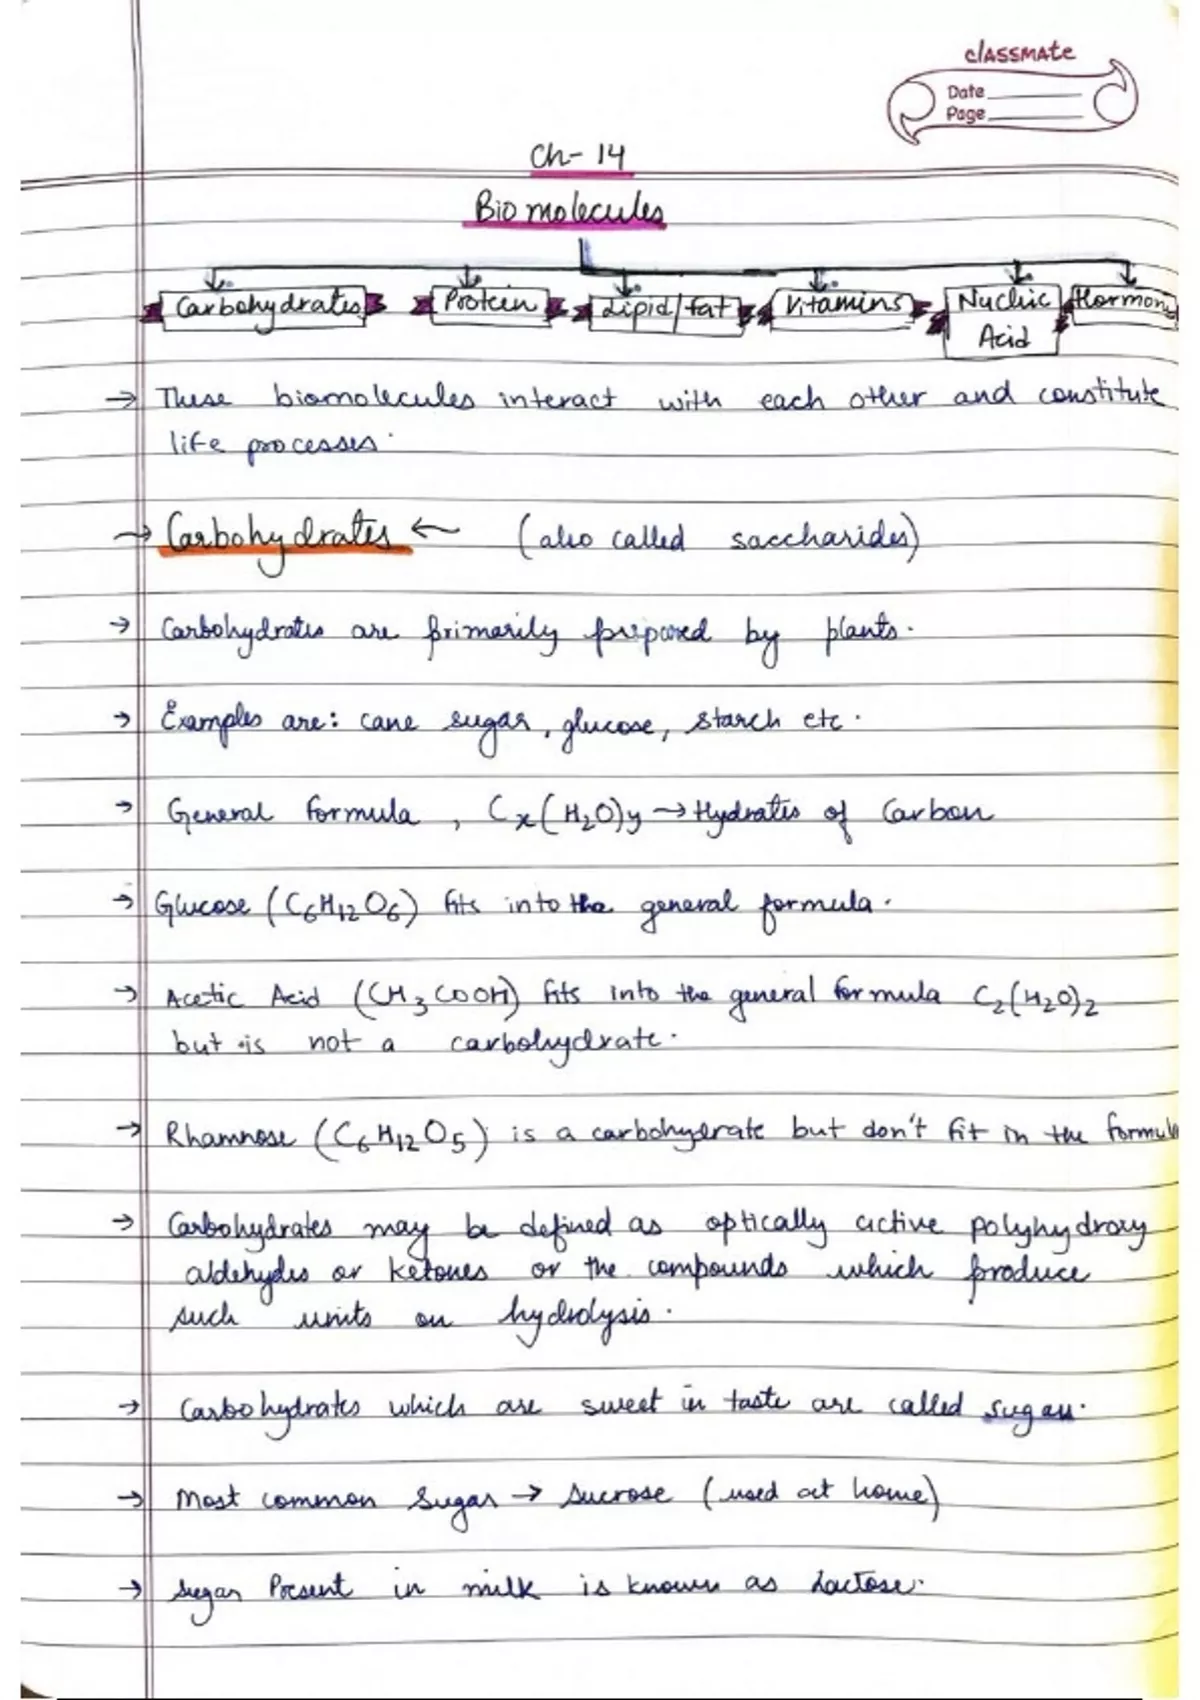 classmate
Date
Page
Ch- 14
Biomolecules
Carbohydrates Protein Lipid/fat Vitamins Nucleic Acid Hormon
→ These biomolecules interact with each other and constitute
life processes.
→ Carbohydrates ← (also called saccharides)
→ Carbohydrates are primarily prepared by plants.
→ Examples are: cane sugar, glucose, starch etc.
→ General formula, Cx(H2O)y → Hydrates of Carbon
→ Glucose (C6H12O6) fits into the general formula.
→ Acetic Acid (CH3COOH) fits into the general formula C2(H2O)2
but is not a carbohydrate.
→ Rhamnose (C6H12O5) is a carbohydrate but don't fit in the formula
→ Carbohydrates may be defined as optically active polyhydroxy
aldehydes or ketones or the compounds which produce
such units on hydrolysis.
→ Carbohydrates which are sweet in taste are called sugar.
→ Most common Sugar → Sucrose (used at home)
→ Sugar Present in milk is known as Lactose.